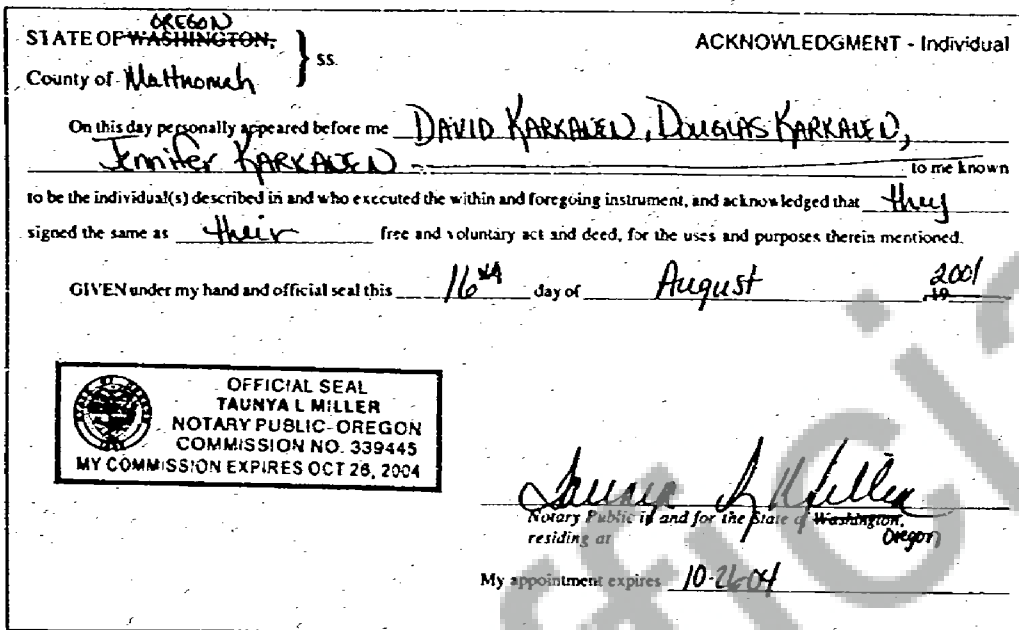 OREGON
STATE OF WASHINGTON, } ss. ACKNOWLEDGMENT - Individual
County of Multnomah
On this day personally appeared before me DAVID KARKANEN, DOUGLAS KARKANEN,
Jennifer KARKANEN to me known
to be the individual(s) described in and who executed the within and foregoing instrument, and acknowledged that they
signed the same as their free and voluntary act and deed, for the uses and purposes therein mentioned.
GIVEN under my hand and official seal this 16th day of August 2001
19
OFFICIAL SEAL
TAUNYA L MILLER
NOTARY PUBLIC-OREGON
COMMISSION NO. 339445
MY COMMISSION EXPIRES OCT 26, 2004
Taunya L Miller
Notary Public in and for the State of Washington,
residing at Oregon
My appointment expires 10-26-04